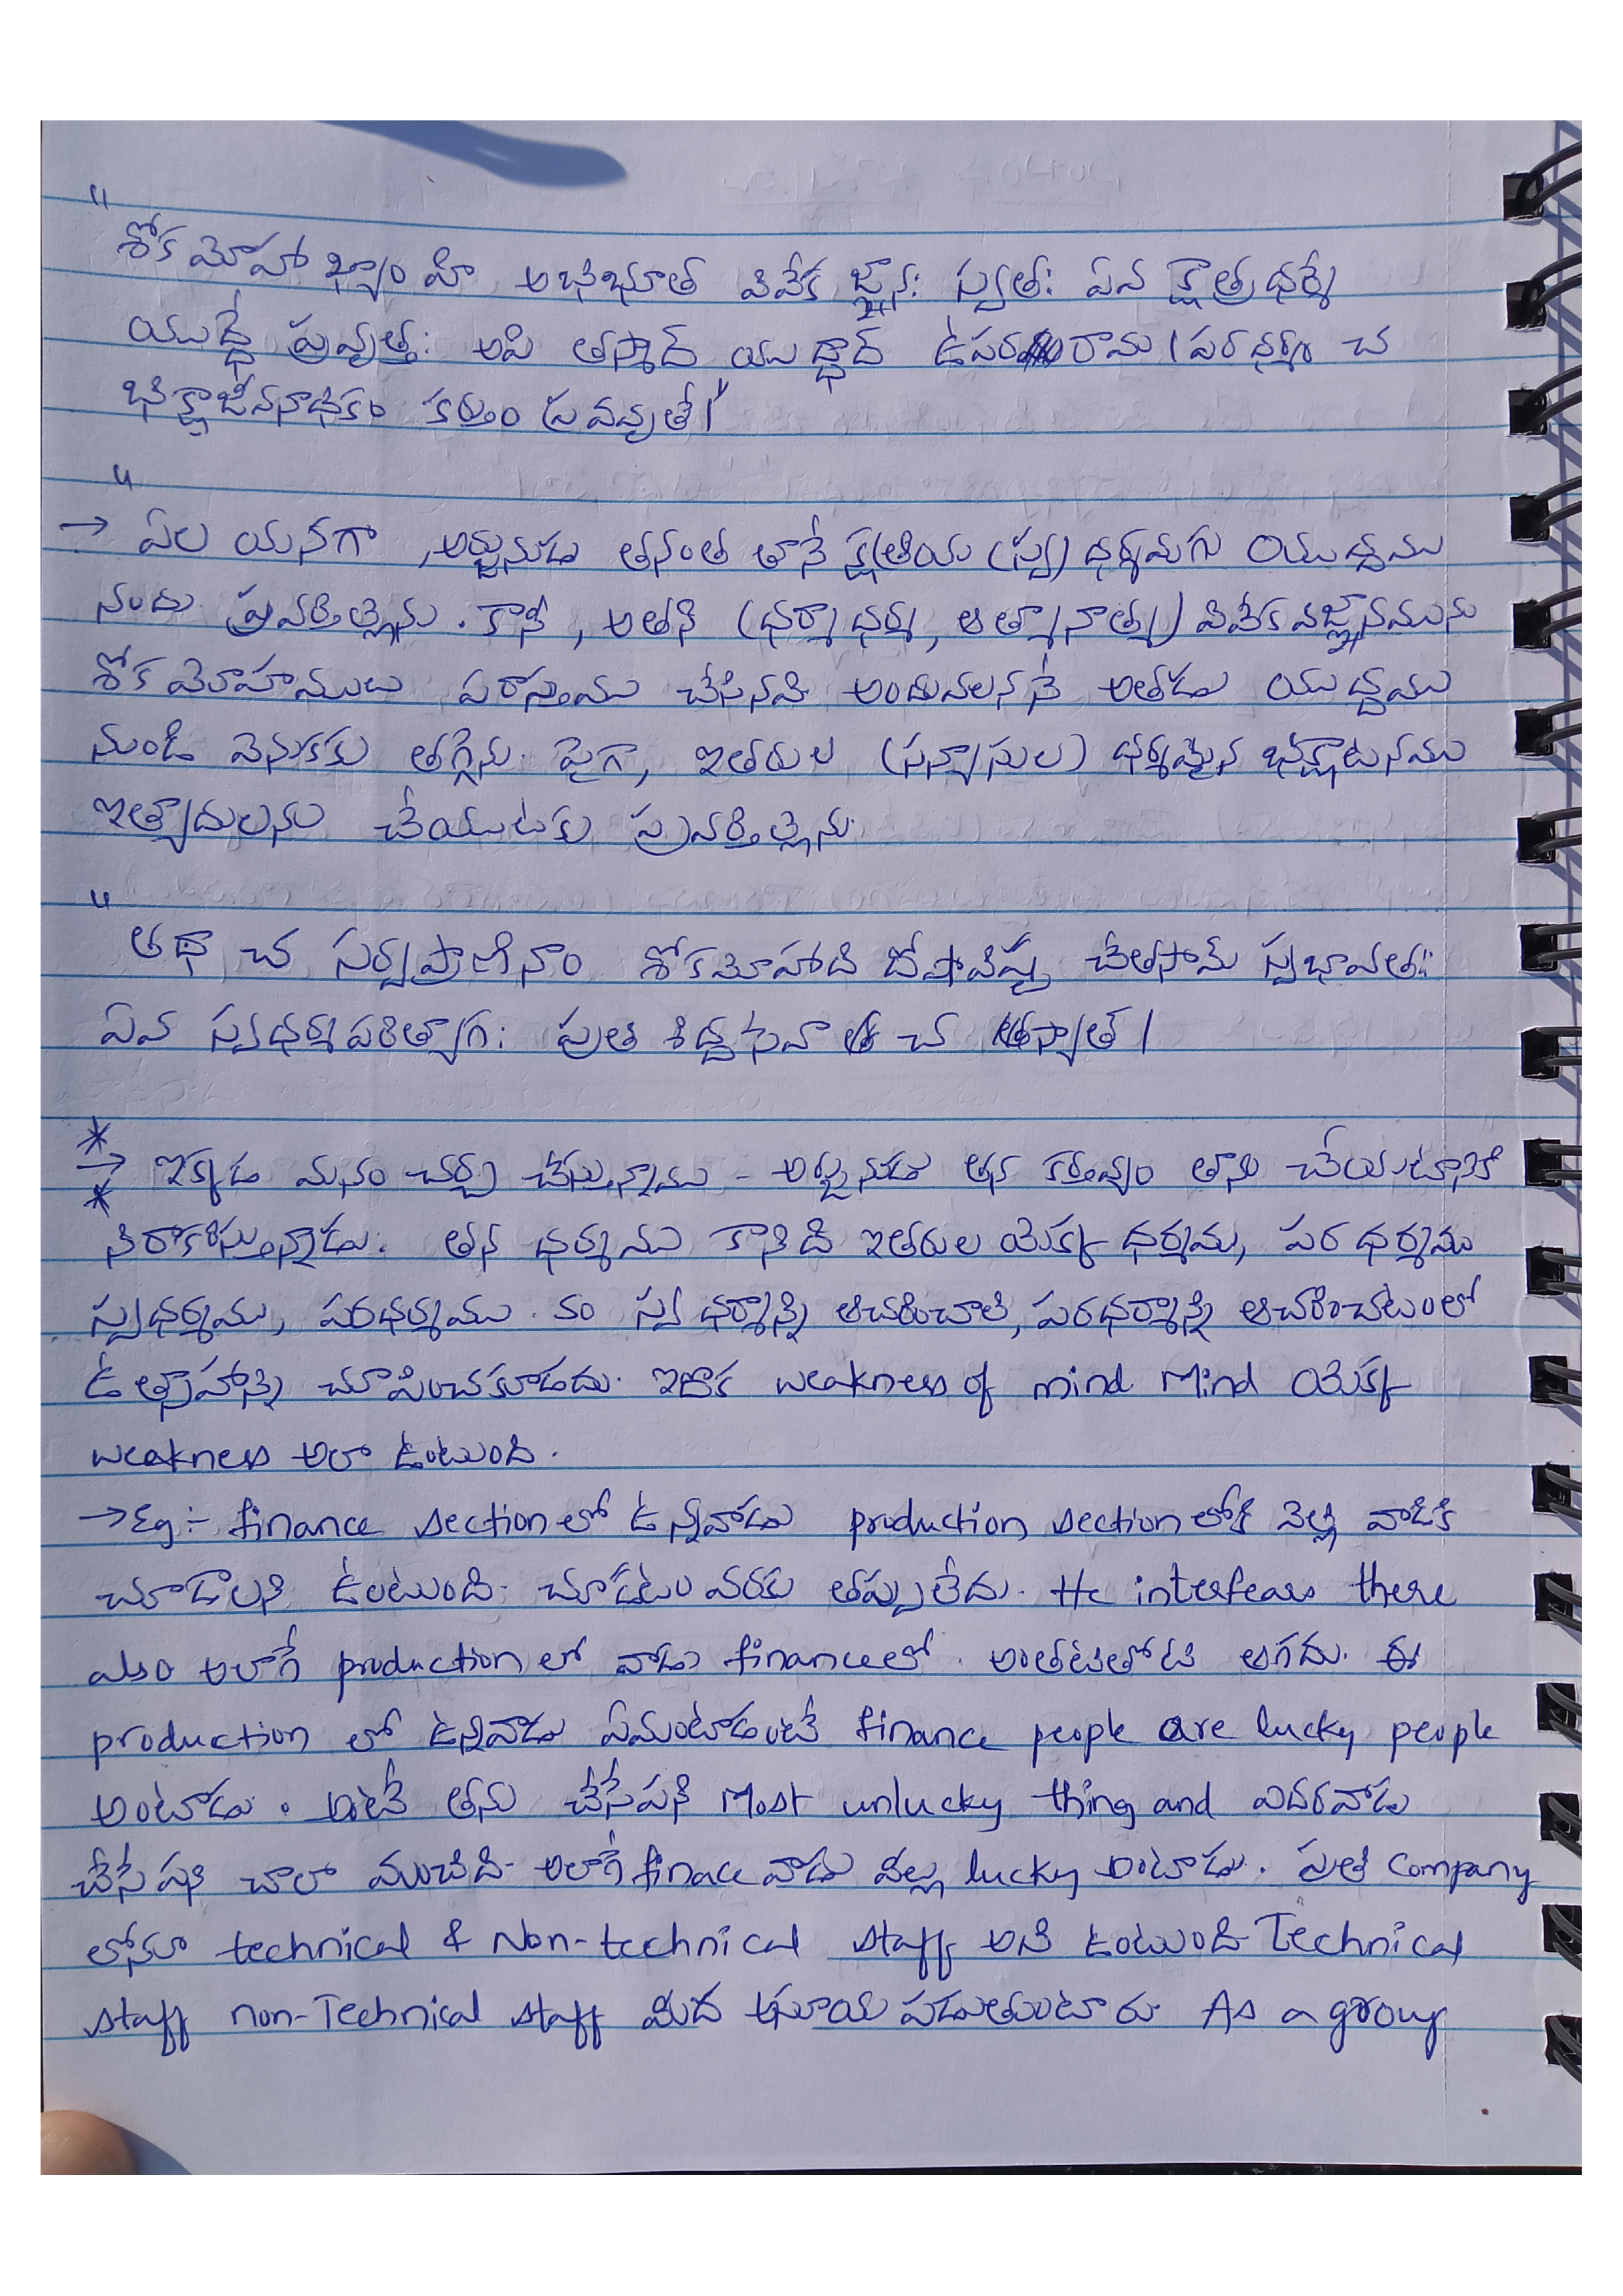 "
శోకమోహాభ్యాం హి అభిభూత వివేక జ్ఞానః స్వతః ఏవ క్షాత్రధర్మే
యుద్ధే ప్రవృత్తః అపి తస్మాద్ యుద్ధాద్ ఉపరరామ । పరధర్మం చ
భిక్షాజీవనాదికం కర్తుం ప్రవవృతే।"
"
→ ఏల యనగా, అర్జునుడు తనంత తానే క్షత్రియ (స్వ) ధర్మమగు యుద్ధము
నందు ప్రవర్తిల్లెను. కానీ, అతని (ధర్మాధర్మ, ఆత్మానాత్మ) వివేకవిజ్ఞానమును
శోకమోహములు పరాస్తము చేసినవి అందువలననే అతడు యుద్ధము
నుండి వెనుకకు తగ్గెను. పైగా, ఇతరుల (సన్యాసుల) ధర్మమైన భిక్షాటనము
ఇత్యాదులను చేయుటకు ప్రవర్తిల్లెను.
"
తథా చ సర్వప్రాణినాం శోకమోహాది దోషావిష్ట చేతసామ్ స్వభావతః
ఏవ స్వధర్మపరిత్యాగః ప్రతిషిద్ధసేవా చ స్యాత్।
*
→ ఇక్కడ మనం చర్చ చేస్తున్నాము - అర్జునుడు తన కర్తవ్యం తాను చేయటానికి
*
నిరాకరిస్తున్నాడు. తన ధర్మము కానిది ఇతరుల యొక్క ధర్మము, పర ధర్మము
స్వధర్మము, పరధర్మము. స్వధర్మాన్ని ఆచరించాలి, పరధర్మాన్ని ఆచరించటంలో
ఉత్సాహాన్ని చూపించకూడదు. ఇదొక weakness of mind Mind యొక్క
weakness అలా ఉంటుంది.
→ Eg:- finance section లో ఉన్నవాడు production section లోకి వెళ్లి వాడికి
చూడాలని ఉంటుంది. చూడటం వరకు తప్పులేదు. He interfears there
also అలాగే production లో వాడు finance లో. అంతటితోటి ఆగదు. ఈ
production లో ఉన్నవాడు ఏమంటాడంటే finance people are lucky people
అంటాడు. అంటే తను చేసేపని Most unlucky thing and ఎదరవాడు
చేసే పని చాలా మంచిది. అలాగే finace వాడు వీల్లు lucky అంటాడు. ప్రతి Company
లోనూ technical & Non-technical staff అని ఉంటుంది Technical
staff non-Technical staff మీద అసూయ పడుతుంటారు. As a group